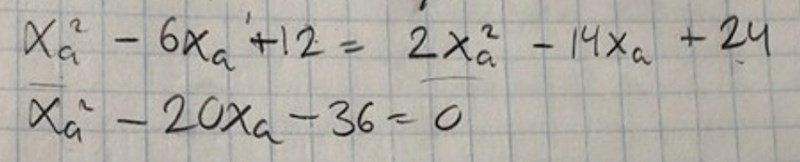 xₐ² - 6xₐ + 12 = 2xₐ² - 14xₐ + 24
xₐ² - 20xₐ - 36 = 0